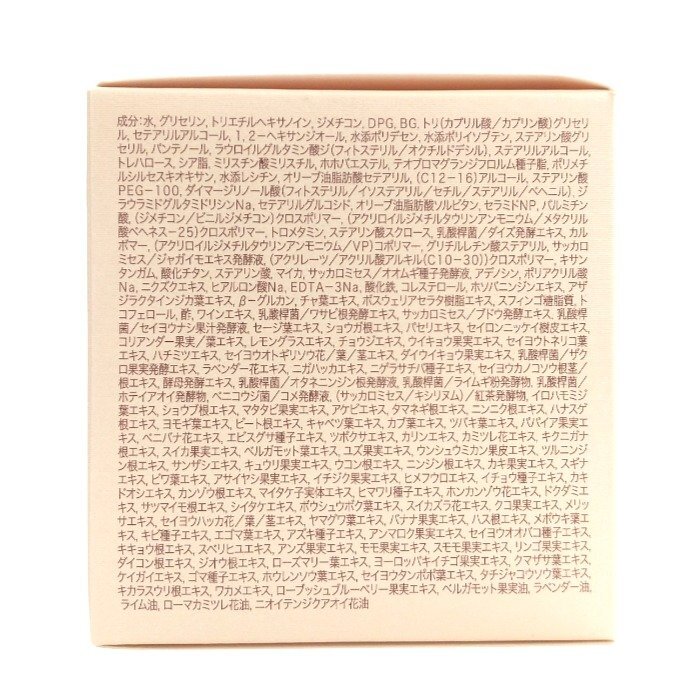 成分:水, グリセリン, トリエチルヘキサノイン, ジメチコン, DPG, BG, トリ(カプリル酸/カプリン酸)グリセリ
ル, セテアリルアルコール, 1, 2-ヘキサンジオール, 水添ポリデセン, 水添ポリイソブテン, ステアリン酸グリ
セリル, パンテノール, ラウロイルグルタミン酸ジ(フィトステリル/オクチルドデシル), ステアリルアルコール,
トレハロース, シア脂, ミリスチン酸ミリスチル, ホホバエステル, テオブロマグランジフロルム種子脂, ポリメチ
ルシルセスキオキサン, 水添レシチン, オリーブ油脂肪酸セテアリル, (C12-16)アルコール, ステアリン酸
PEG-100, ダイマージリノール酸(フィトステリル/イソステアリル/セチル/ステアリル/ベヘニル), ジ
ラウラミドグルタミドリシンNa, セテアリルグルコシド, オリーブ油脂肪酸ソルビタン, セラミドNP, パルミチン
酸, (ジメチコン/ビニルジメチコン)クロスポリマー, (アクリロイルジメチルタウリンアンモニウム/メタクリル
酸ベヘネス-25)クロスポリマー, トロメタミン, ステアリン酸スクロース, 乳酸桿菌/ダイズ発酵エキス, カル
ボマー, (アクリロイルジメチルタウリンアンモニウム/VP)コポリマー, グリチルレチン酸ステアリル, サッカロ
ミセス/ジャガイモエキス発酵液, (アクリレーツ/アクリル酸アルキル(C10-30))クロスポリマー, キサン
タンガム, 酸化チタン, ステアリン酸, マイカ, サッカロミセス/オオムギ種子発酵液, アデノシン, ポリアクリル酸
Na, ニクズクエキス, ヒアルロン酸Na, EDTA-3Na, 酸化鉄, コレステロール, ホソバニンジンエキス, アザ
ジラクタインジカ葉エキス, β-グルカン, チャ葉エキス, ボスウェリアセラタ樹脂エキス, スフィンゴ糖脂質, ト
コフェロール, 酢, ワインエキス, 乳酸桿菌/ワサビ根発酵エキス, サッカロミセス/ブドウ発酵エキス, 乳酸桿
菌/セイヨウナシ果汁発酵液, セージ葉エキス, ショウガ根エキス, パセリエキス, セイロンニッケイ樹皮エキス,
コリアンダー果実/葉エキス, レモングラスエキス, チョウジエキス, ウイキョウ果実エキス, セイヨウトネリコ葉
エキス, ハチミツエキス, セイヨウオトギリソウ花/葉/茎エキス, ダイウイキョウ果実エキス, 乳酸桿菌/ザク
ロ果実発酵エキス, ラベンダー花エキス, ニガハッカエキス, ニゲラサチバ種子エキス, セイヨウカノコソウ根茎/
根エキス, 酵母発酵エキス, 乳酸桿菌/オタネニンジン根発酵液, 乳酸桿菌/ライムギ粉発酵物, 乳酸桿菌/
ホテイアオイ発酵物, ベニコウジ菌/コメ発酵液, (サッカロミセス/キシリヌム)/紅茶発酵物, イロハモミジ
葉エキス, ショウブ根エキス, マタタビ果実エキス, アケビエキス, タマネギ根エキス, ニンニク根エキス, ハナスゲ
根エキス, ヨモギ葉エキス, ビート根エキス, キャベツ葉エキス, カブ葉エキス, ツバキ葉エキス, パパイア果実エ
キス, ベニバナ花エキス, エビスグサ種子エキス, ツボクサエキス, カリンエキス, カミツレ花エキス, キクニガナ
根エキス, スイカ果実エキス, ベルガモット葉エキス, ユズ果実エキス, ウンシュウミカン果皮エキス, ツルニンジ
ン根エキス, サンザシエキス, キュウリ果実エキス, ウコン根エキス, ニンジン根エキス, カキ果実エキス, スギナ
エキス, ビワ葉エキス, アサイヤシ果実エキス, イチジク果実エキス, ヒメフウロエキス, イチョウ種子エキス, カキ
ドオシエキス, カンゾウ根エキス, マイタケ子実体エキス, ヒマワリ種子エキス, ホンカンゾウ花エキス, ドクダミエ
キス, サツマイモ根エキス, シイタケエキス, ボウシュウボク葉エキス, スイカズラ花エキス, クコ果実エキス, メリッ
サエキス, セイヨウハッカ花/葉/茎エキス, ヤマグワ葉エキス, バナナ果実エキス, ハス根エキス, メボウキ葉エ
キス, キビ種子エキス, エゴマ葉エキス, アズキ種子エキス, アンマロク果実エキス, セイヨウオオバコ種子エキス,
キキョウ根エキス, スベリヒユエキス, アンズ果実エキス, モモ果実エキス, スモモ果実エキス, リンゴ果実エキス,
ダイコン根エキス, ジオウ根エキス, ローズマリー葉エキス, ヨーロッパキイチゴ果実エキス, クマザサ葉エキス,
ケイガイエキス, ゴマ種子エキス, ホウレンソウ葉エキス, セイヨウタンポポ葉エキス, タチジャコウソウ葉エキス,
キカラスウリ根エキス, ワカメエキス, ローブッシュブルーベリー果実エキス, ベルガモット果実油, ラベンダー油,
ライム油, ローマカミツレ花油, ニオイテンジクアオイ花油